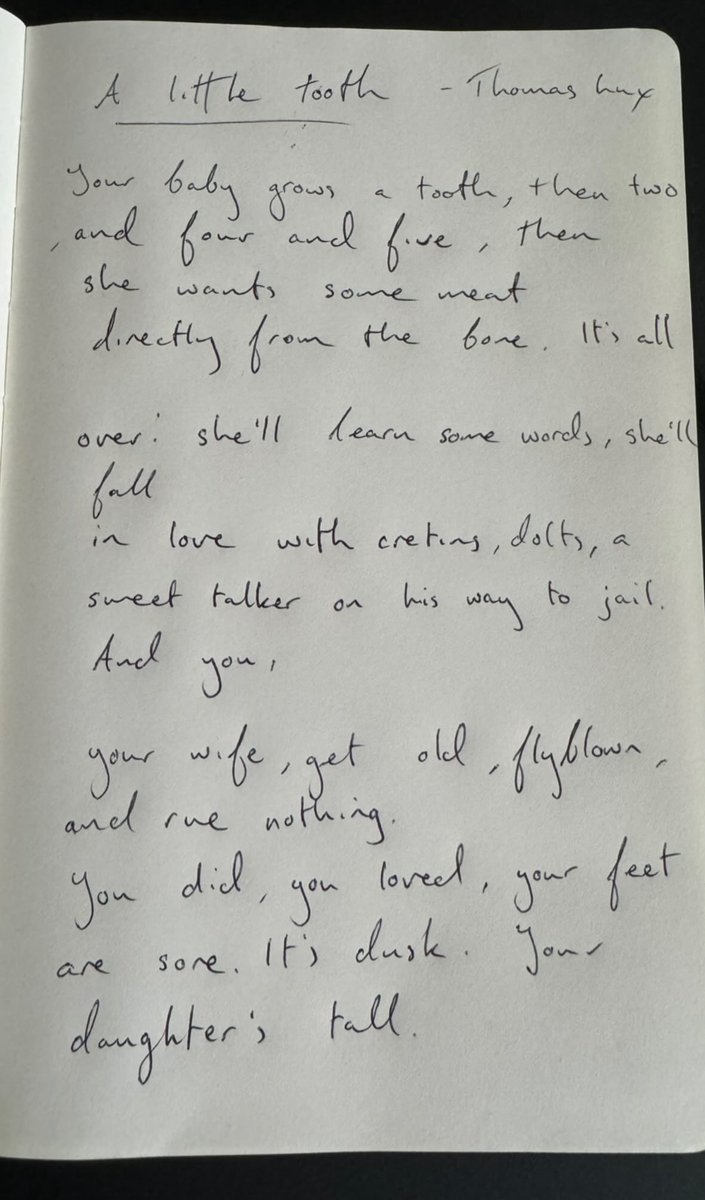 A little tooth - Thomas Lux
Your baby grows a tooth, then two
, and four and five, then
she wants some meat
directly from the bone. It's all
over: she'll learn some words, she'll
fall
in love with cretins, dolts, a
sweet talker on his way to jail.
And you,
your wife, get old, flyblown,
and rue nothing.
You did, you loved, your feet
are sore. It's dusk. Your
daughter's tall.